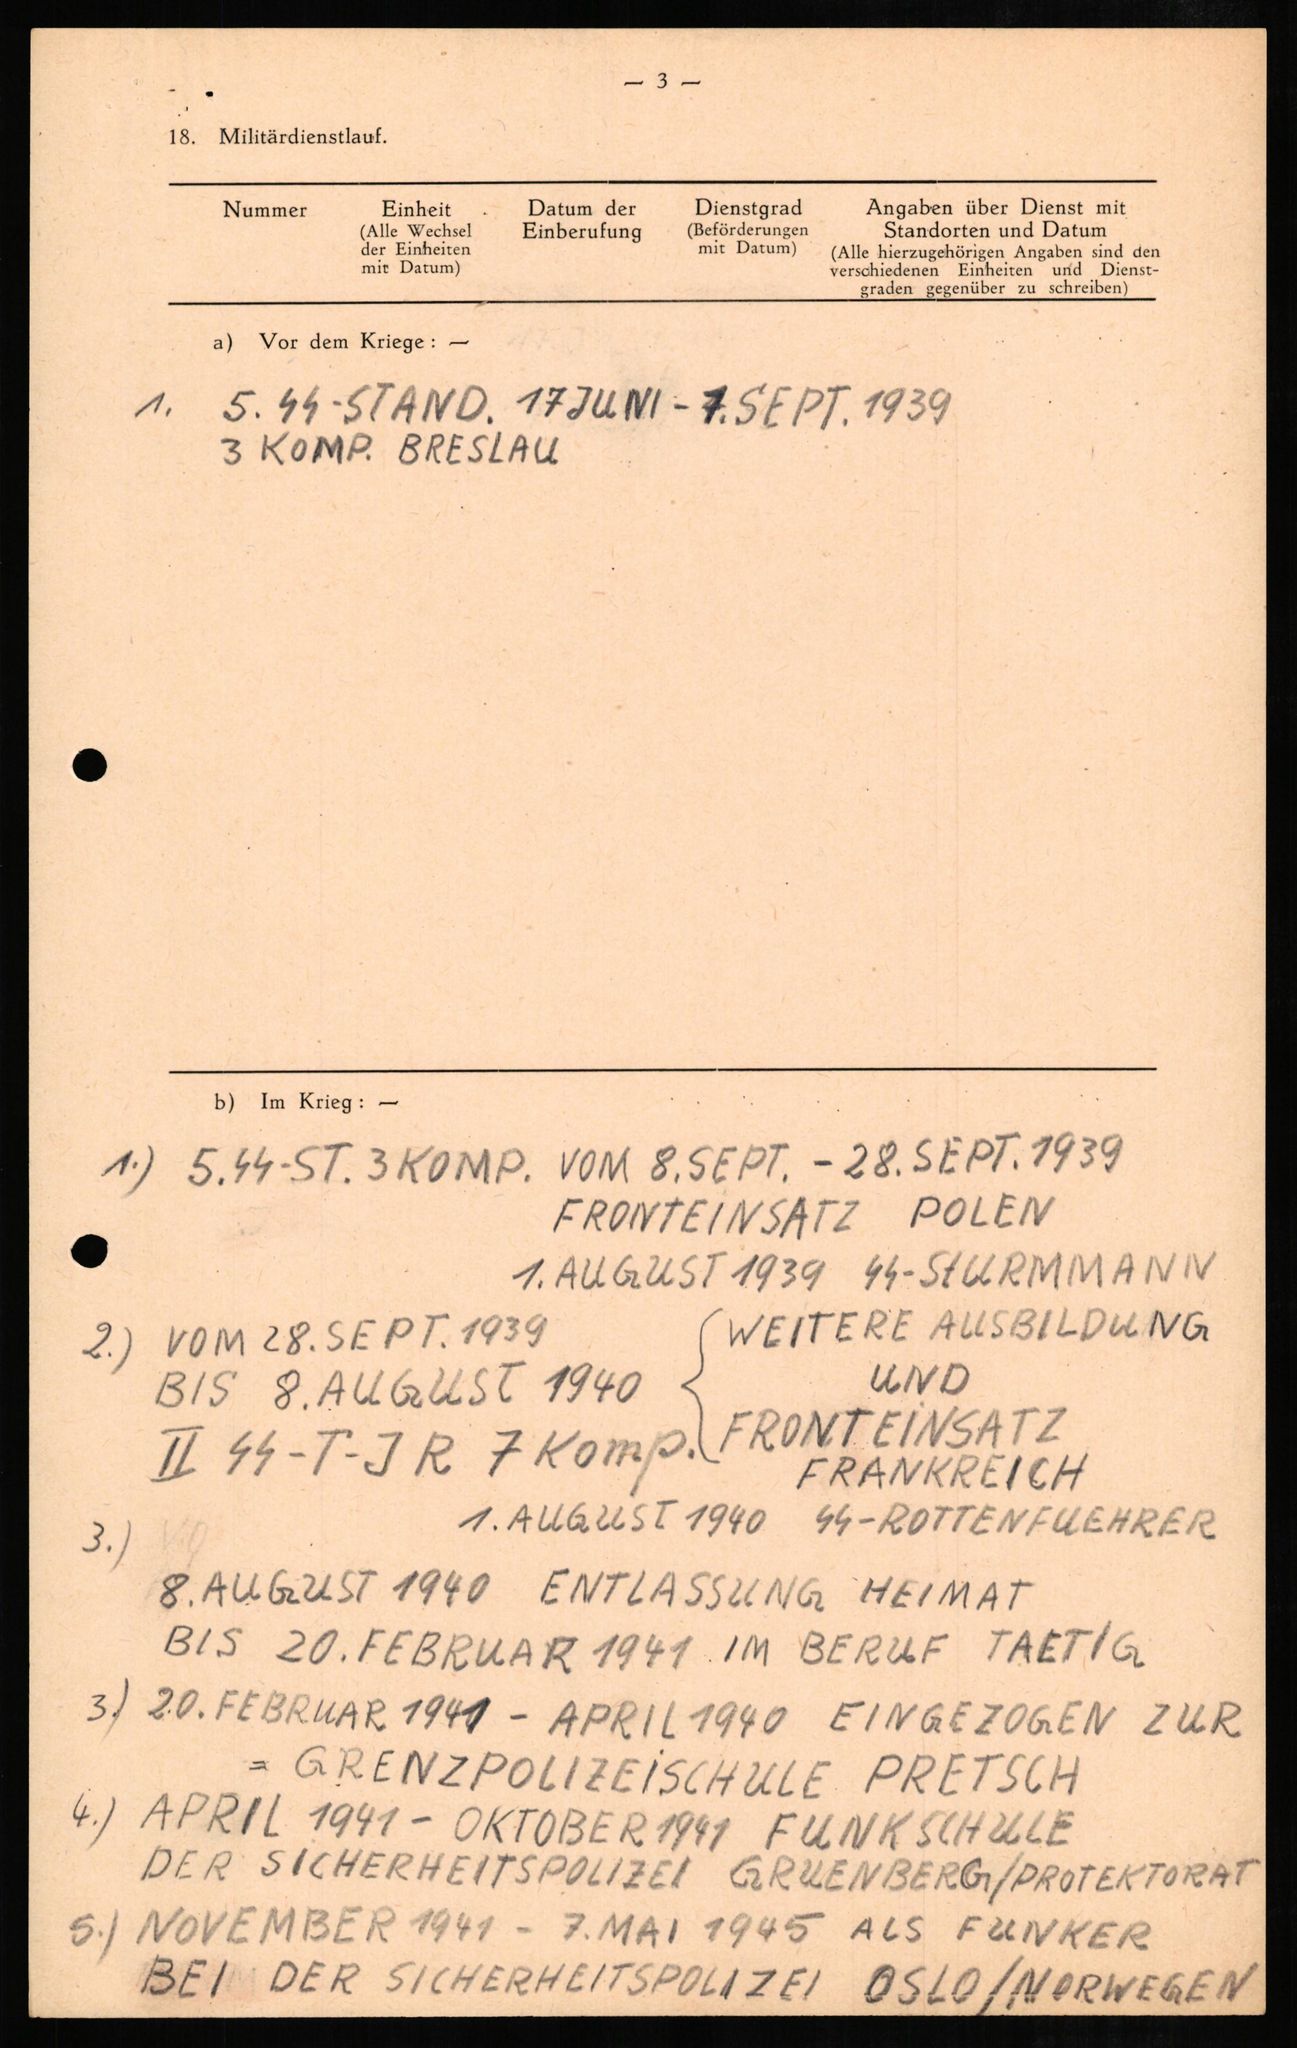 — 3 —
18. Militärdienstlauf.
Nummer
Einheit
(Alle Wechsel
der Einheiten
mit Datum)
Datum der
Einberufung
Dienstgrad
(Beförderungen
mit Datum)
Angaben über Dienst mit
Standorten und Datum
(Alle hierzugehörigen Angaben sind den
verschiedenen Einheiten und Dienst-
graden gegenüber zu schreiben)
a) Vor dem Kriege: —
1. 5. SS-STAND. 17 JUNI - 1. SEPT. 1939
3 KOMP. BRESLAU
b) Im Krieg: —
1.) 5. SS-ST. 3 KOMP. VOM 8. SEPT. - 28. SEPT. 1939
FRONTEINSATZ POLEN
1. AUGUST 1939 SS-STURMMANN
2.) VOM 28. SEPT. 1939
BIS 8. AUGUST 1940
II SS-T-JR 7 Komp.
WEITERE AUSBILDUNG
UND
FRONTEINSATZ
FRANKREICH
1. AUGUST 1940 SS-ROTTENFUEHRER
3.)
8. AUGUST 1940 ENTLASSUNG HEIMAT
BIS 20. FEBRUAR 1941 IM BERUF TAETIG
3.) 20. FEBRUAR 1941 - APRIL 1940 EINGEZOGEN ZUR
= GRENZPOLIZEISCHULE PRETSCH
4.) APRIL 1941 - OKTOBER 1941 FUNKSCHULE
DER SICHERHEITSPOLIZEI GRUENBERG/PROTEKTORAT
5.) NOVEMBER 1941 - 7. MAI 1945 ALS FUNKER
BEI DER SICHERHEITSPOLIZEI OSLO/NORWEGEN